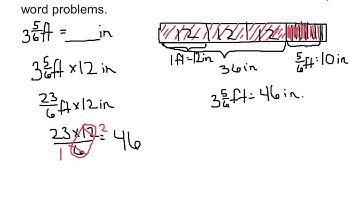 word problems.
3 5/6 ft = ____ in
3 5/6 ft × 12 in
23/6 ft × 12 in
23 × 12 / 6 = 46
1 2
12 12 12
1 ft = 12 in
36 in
5/6 ft = 10 in
3 5/6 ft = 46 in.